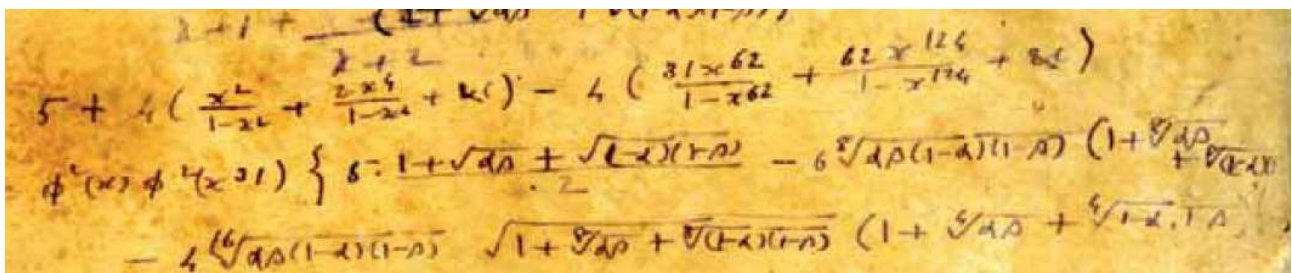 x+1 + (1+ √αβ
x+2
5 + 4 ( x²/1-x² + 2x⁴/1-x⁴ + &c) - 4 ( 31x⁶²/1-x⁶² + 62x¹²⁴/1-x¹²⁴ + &c)
φ²(x) φ²(x³¹) { 6· 1+√αβ + √(1-α)(1-β) / 2 - 6 ⁸√αβ(1-α)(1-β) (1+ ⁸√αβ + ⁸√(1-α)(
- 4 ¹⁶√αβ(1-α)(1-β) √1+ ⁸√αβ + ⁸√(1-α)(1-β) (1+ ⁴√αβ + ⁴√1-α.1-β